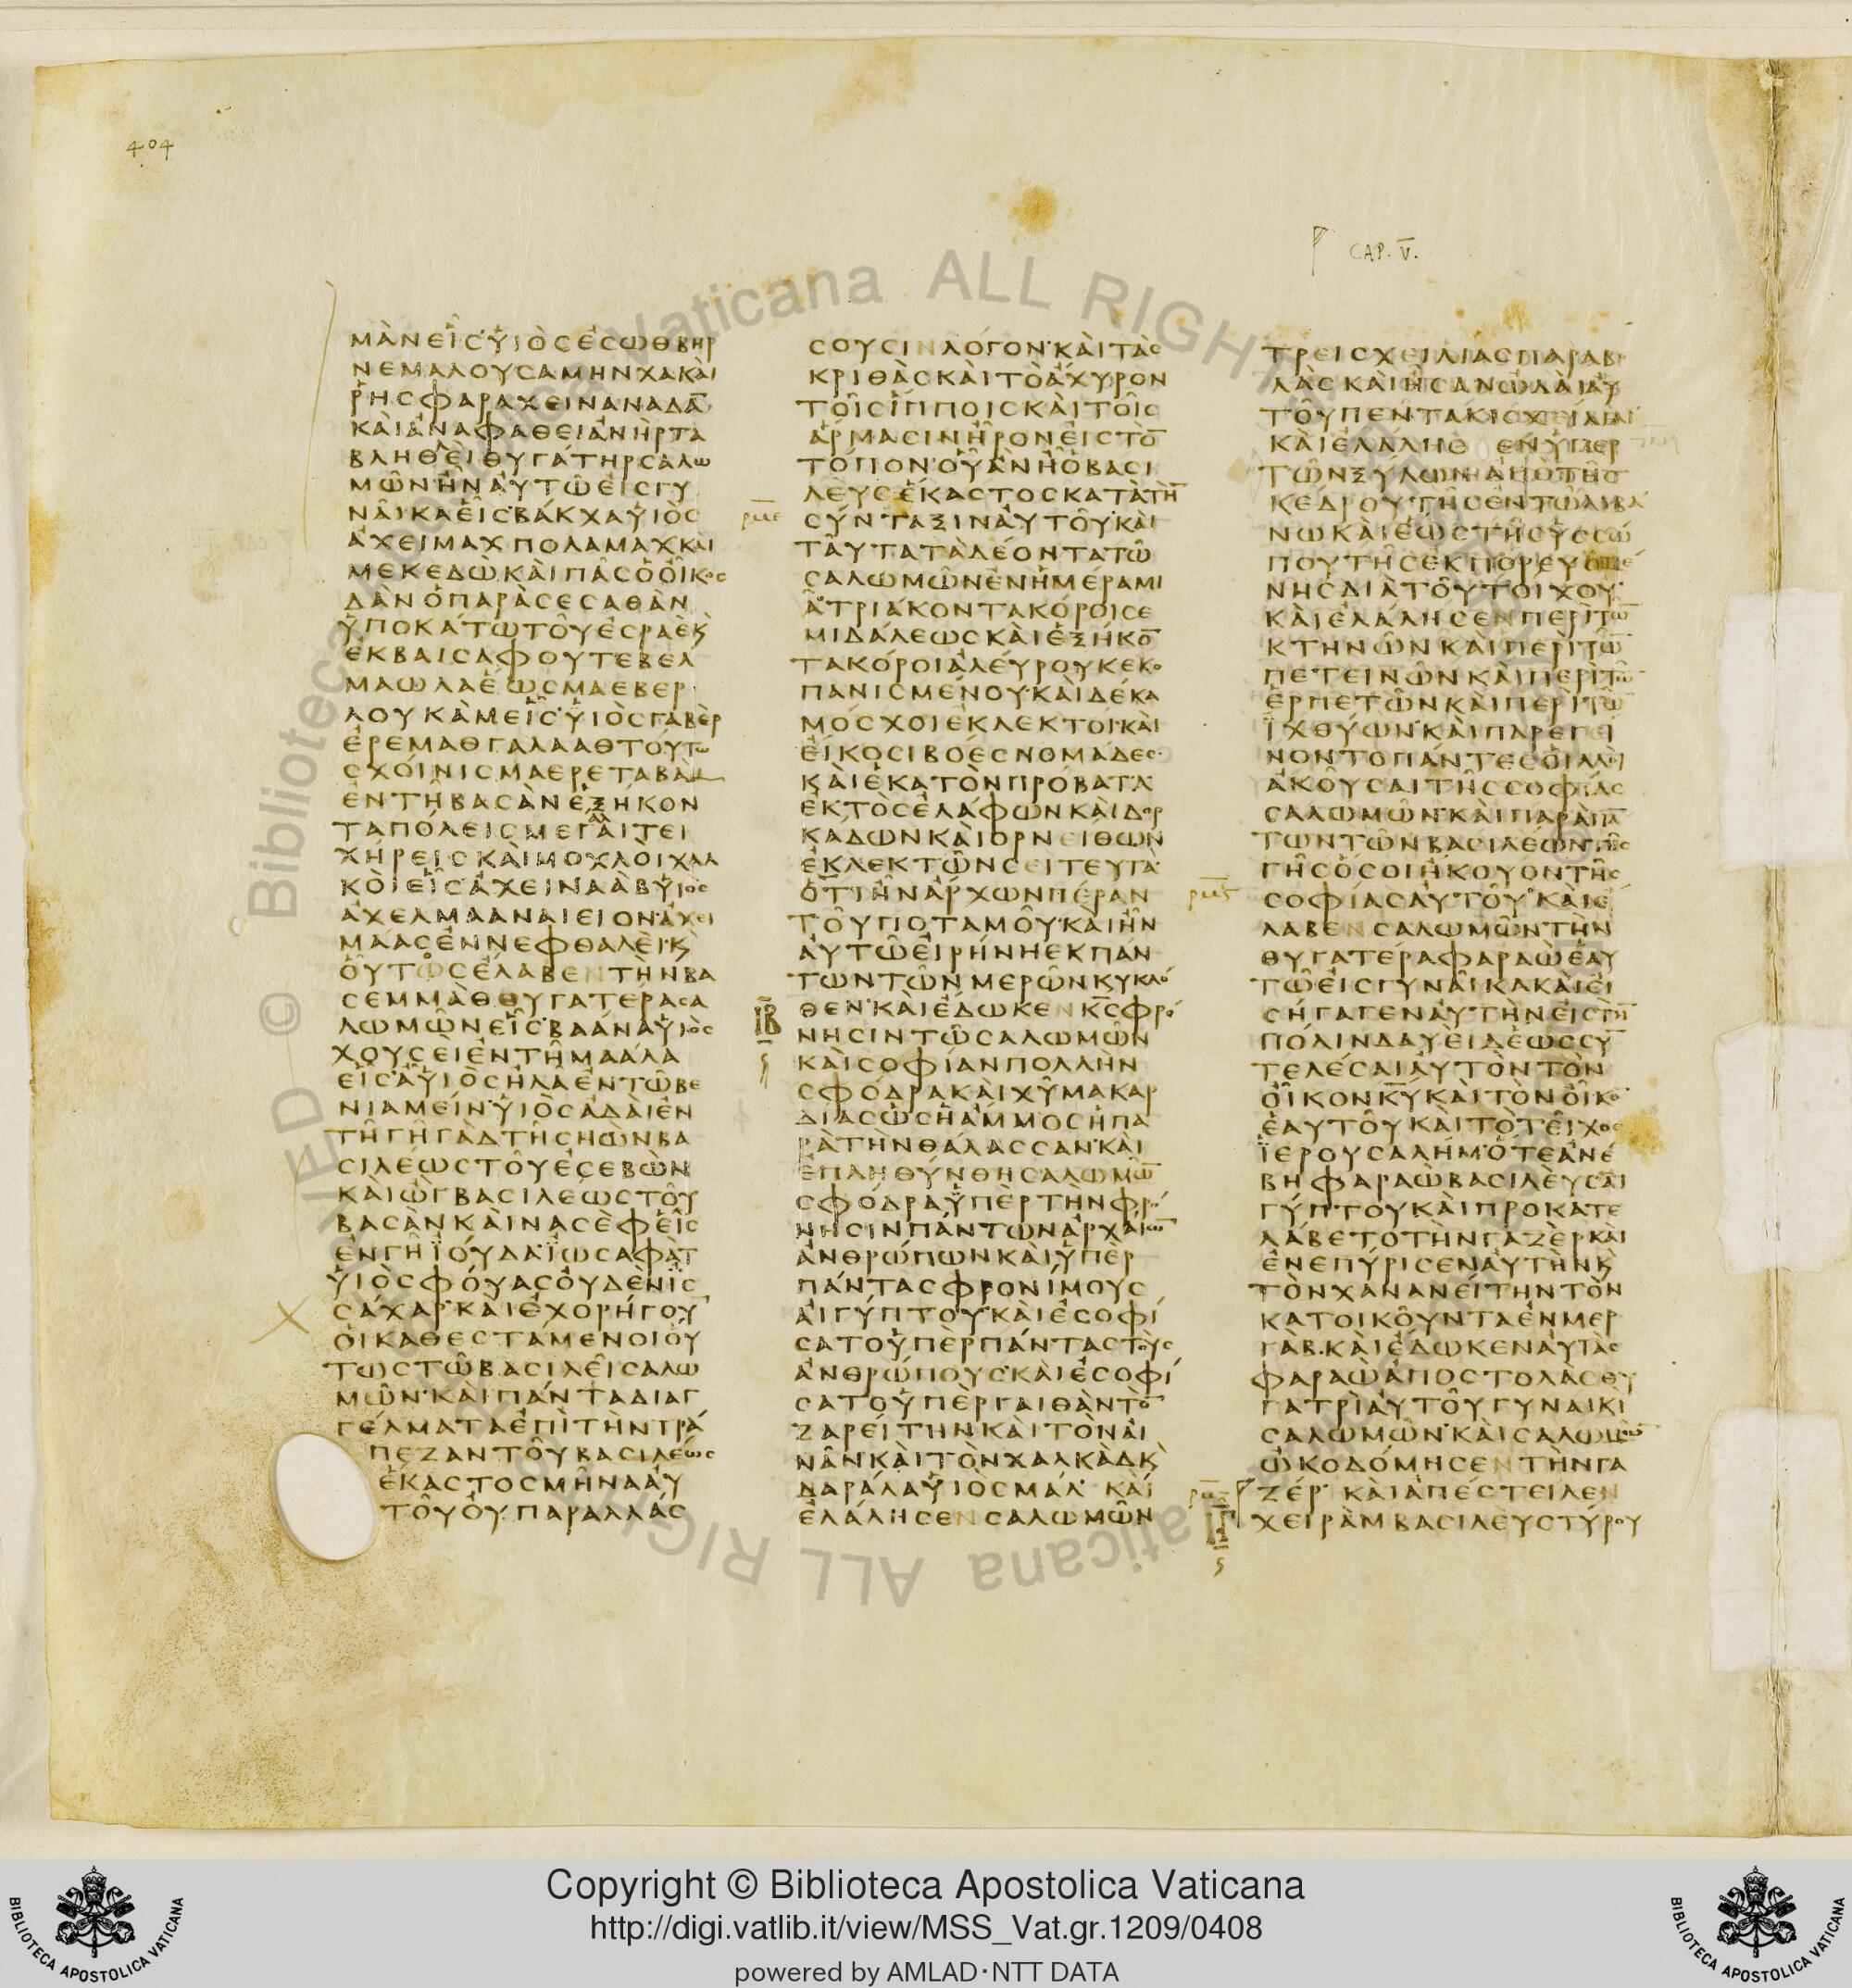 404
CAP. V.
ΜΑΝΕΙΣΥΙΟΣΕΣΩΘΒΗΡ
ΝΕΜΑΛΟΥΣΑΜΗΝΧΑΚΑΙ
ΡΗΣΦΑΡΑΧΕΙΝΑΝΑΔΑ̅
ΚΑΙΑΝΑΦΑΘΕΙΑΝΗΡΤΑ
ΒΛΗΘΕΙΘΥΓΑΤΗΡΣΑΛΩ
ΜΩΝΗΝΑΥΤΩΕΙΣΓΥ
ΝΑΙΚΑΕΙΣΒΑΚΧΑΥΙΟΣ
ΑΧΕΙΜΑΧΠΟΛΑΜΑΧΚΑΙ
ΜΕΚΕΔΩΚΑΙΠΑΣΟΟΙΚΟΣ
ΔΑΝΟΠΑΡΑΣΕΣΑΘΑΝ
ΥΠΟΚΑΤΩΤΟΥΕΣΡΑΕΚ
ΕΚΒΑΙΣΑΦΟΥΤΕΒΕΛ
ΜΑΩΛΑΕΩΣΜΑΕΒΕΡ
ΛΟΥΚΑΜΕΙΣΥΙΟΣΓΑΒΕΡ
ΕΡΕΜΑΘΓΑΛΑΑΘΤΟΥΤΩ
ΣΧΟΙΝΙΣΜΑΕΡΕΤΑΒΑΛ
ΕΝΤΗΒΑΣΑΝΕΞΗΚΟΝ
ΤΑΠΟΛΕΙΣΜΕΓΑΛΑΙΤΕΙ
ΧΗΡΕΙΣΚΑΙΜΟΧΛΟΙΧΑΛ
ΚΟΙΕΙΣΑΧΕΙΝΑΑΒΥΙΟΣ
ΑΧΕΛΜΑΑΝΑΙΕΙΟΝΑΧΕΙ
ΜΑΑΣΕΝΝΕΦΘΑΛΕΙΚ
ΟΥΤΟΣΕΛΑΒΕΝΤΗΝΒΑ
ΣΕΜΜΑΘΘΥΓΑΤΕΡΑΣΑ
ΛΩΜΩΝΕΙΣΒΑΑΝΑΥΙΟΣ
ΧΟΥΣΕΙΕΝΤΗΜΑΑΛΑ
ΕΙΣΑΥΙΟΣΗΛΑΕΝΤΩΒΕ
ΝΙΑΜΕΙΝΥΙΟΣΑΔΑΙΕΝ
ΤΗΓΗΓΑΔΤΗΣΗΩΝΒΑ
ΣΙΛΕΩΣΤΟΥΕΣΕΒΩΝ
ΚΑΙΩΓΒΑΣΙΛΕΩΣΤΟΥ
ΒΑΣΑΝΚΑΙΝΑΣΕΦΕΙΣ
ΕΝΓΗΙΟΥΔΑΙΩΣΑΦΑΤ
ΥΙΟΣΦΟΥΑΣΟΥΔΕΝΙΣ
ΣΑΧΑΡΚΑΙΕΧΟΡΗΓΟΥ
ΟΙΚΑΘΕΣΤΑΜΕΝΟΙΟΥ
ΤΩΣΤΩΒΑΣΙΛΕΙΣΑΛΩ
ΜΩΝΚΑΙΠΑΝΤΑΔΙΑΓ
ΓΕΛΜΑΤΑΕΠΙΤΗΝΤΡΑ
ΠΕΖΑΝΤΟΥΒΑΣΙΛΕΩΣ
ΕΚΑΣΤΟΣΜΗΝΑΑΥ
ΤΟΥΟΥΠΑΡΑΛΛΑΣ
ΣΟΥΣΙΝΛΟΓΟΝΚΑΙΤΑΣ
ΚΡΙΘΑΣΚΑΙΤΟΑΧΥΡΟΝ
ΤΟΙΣΙΠΠΟΙΣΚΑΙΤΟΙΣ
ΑΡΜΑΣΙΝΗΡΟΝΕΙΣΤΟ̅
ΤΟΠΟΝΟΥΑΝΗΟΒΑΣΙ
ΛΕΥΣΕΚΑΣΤΟΣΚΑΤΑΤΗ̅
ΣΥΝΤΑΞΙΝΑΥΤΟΥΚΑΙ
ΤΑΥΤΑΤΑΔΕΟΝΤΑΤΩ
ΣΑΛΩΜΩΝΕΝΗΜΕΡΑΜΙ
ΑΤΡΙΑΚΟΝΤΑΚΟΡΟΙΣΕ
ΜΙΔΑΛΕΩΣΚΑΙΕΞΗΚΟ̅
ΤΑΚΟΡΟΙΑΛΕΥΡΟΥΚΕΚΟ
ΠΑΝΙΣΜΕΝΟΥΚΑΙΔΕΚΑ
ΜΟΣΧΟΙΕΚΛΕΚΤΟΙΚΑΙ
ΕΙΚΟΣΙΒΟΕΣΝΟΜΑΔΕΣ
ΚΑΙΕΚΑΤΟΝΠΡΟΒΑΤΑ
ΕΚΤΟΣΕΛΑΦΩΝΚΑΙΔΟΡ
ΚΑΔΩΝΚΑΙΟΡΝΕΙΘΩΝ
ΕΚΛΕΚΤΩΝΣΕΙΤΕΥΤΑ
ΟΤΙΗΝΑΡΧΩΝΠΕΡΑΝ
ΤΟΥΠΟΤΑΜΟΥΚΑΙΗΝ
ΑΥΤΩΕΙΡΗΝΗΕΚΠΑΝ
ΤΩΝΤΩΝΜΕΡΩΝΚΥΚΛΟ
ΘΕΝΚΑΙΕΔΩΚΕΝΚ̅Σ̅ΦΡΟ
ΝΗΣΙΝΤΩΣΑΛΩΜΩΝ
ΚΑΙΣΟΦΙΑΝΠΟΛΛΗΝ
ΣΦΟΔΡΑΚΑΙΧΥΜΑΚΑΡ
ΔΙΑΣΩΣΗΑΜΜΟΣΗΠΑ
ΡΑΤΗΝΘΑΛΑΣΣΑΝΚΑΙ
ΕΠΛΗΘΥΝΘΗΣΑΛΩΜΩ̅
ΣΦΟΔΡΑΥΠΕΡΤΗΝΦΡΟ
ΝΗΣΙΝΠΑΝΤΩΝΑΡΧΑΙΩ̅
ΑΝΘΡΩΠΩΝΚΑΙΥΠΕΡ
ΠΑΝΤΑΣΦΡΟΝΙΜΟΥΣ
ΑΙΓΥΠΤΟΥΚΑΙΕΣΟΦΙ
ΣΑΤΟΥΠΕΡΠΑΝΤΑΣΤΟΥΣ
ΑΝΘΡΩΠΟΥΣΚΑΙΕΣΟΦΙ
ΣΑΤΟΥΠΕΡΓΑΙΘΑΝΤΟ̅
ΖΑΡΕΙΤΗΝΚΑΙΤΟΝΑΙ
ΝΑΝΚΑΙΤΟΝΧΑΛΚΑΔΚ
ΔΑΡΑΛΑΥΙΟΣΜΑΛ ΚΑΙ
ΕΛΑΛΗΣΕΝΣΑΛΩΜΩΝ
ΤΡΕΙΣΧΕΙΛΙΑΣΠΑΡΑΒΟ
ΛΑΣΚΑΙΗΣΑΝΩΔΑΙΑΥ
ΤΟΥΠΕΝΤΑΚΙΣΧΕΙΛΙΑΙ
ΚΑΙΕΛΑΛΗΣΕΝΥΠΕΡ
ΤΩΝΞΥΛΩΝΑΠΟΤΗΣ
ΚΕΔΡΟΥΤΗΣΕΝΤΩΛΙΒΑ
ΝΩΚΑΙΕΩΣΤΗΣΥΣΣΩ
ΠΟΥΤΗΣΕΚΠΟΡΕΥΟΜΕ
ΝΗΣΔΙΑΤΟΥΤΟΙΧΟΥ
ΚΑΙΕΛΑΛΗΣΕΝΠΕΡΙΤΩ̅
ΚΤΗΝΩΝΚΑΙΠΕΡΙΤΩ̅
ΠΕΤΕΙΝΩΝΚΑΙΠΕΡΙΤΩ̅
ΕΡΠΕΤΩΝΚΑΙΠΕΡΙΤΩ̅
ΙΧΘΥΩΝΚΑΙΠΑΡΕΓΕΙ
ΝΟΝΤΟΠΑΝΤΕΣΟΙΛΑΟΙ
ΑΚΟΥΣΑΙΤΗΣΣΟΦΙΑΣ
ΣΑΛΩΜΩΝΚΑΙΠΑΡΑΠΑ̅
ΤΩΝΤΩΝΒΑΣΙΛΕΩΝΤΗΣ
ΓΗΣΟΣΟΙΗΚΟΥΟΝΤΗΣ
ΣΟΦΙΑΣΑΥΤΟΥΚΑΙΕ
ΛΑΒΕΝΣΑΛΩΜΩΝΤΗΝ
ΘΥΓΑΤΕΡΑΦΑΡΑΩΕΑΥ
ΤΩΕΙΣΓΥΝΑΙΚΑΚΑΙΕΙ
ΣΗΓΑΓΕΝΑΥΤΗΝΕΙΣΤΗ̅
ΠΟΛΙΝΔΑΥΕΙΔΕΩΣΣΥ̅
ΤΕΛΕΣΑΙΑΥΤΟΝΤΟΝ
ΟΙΚΟΝΚ̅Υ̅ΚΑΙΤΟΝΟΙΚΟ̅
ΕΑΥΤΟΥΚΑΙΤΟΤΕΙΧΟΣ
ΙΕΡΟΥΣΑΛΗΜΟΤΕΑΝΕ
ΒΗΦΑΡΑΩΒΑΣΙΛΕΥΣΑΙ
ΓΥΠΤΟΥΚΑΙΠΡΟΚΑΤΕ
ΛΑΒΕΤΟΤΗΝΓΑΖΕΡΚΑΙ
ΕΝΕΠΥΡΙΣΕΝΑΥΤΗΝΚ
ΤΟΝΧΑΝΑΝΕΙΤΗΝΤΟΝ
ΚΑΤΟΙΚΟΥΝΤΑΕΝΜΕΡ
ΓΑΒΚΑΙΕΔΩΚΕΝΑΥΤΑΣ
ΦΑΡΑΩΑΠΟΣΤΟΛΑΣΘΥ
ΓΑΤΡΙΑΥΤΟΥΓΥΝΑΙΚΙ
ΣΑΛΩΜΩΝΚΑΙΣΑΛΩΜΩ̅
ΩΚΟΔΟΜΗΣΕΝΤΗΝΓΑ
ΖΕΡ ΚΑΙΑΠΕΣΤΕΙΛΕΝ
ΧΕΙΡΑΜΒΑΣΙΛΕΥΣΤΥΡΟΥ
© Biblioteca Vaticana ALL RIGHTS
Copyright © Biblioteca Apostolica Vaticana
http://digi.vatlib.it/view/MSS_Vat.gr.1209/0408
powered by AMLAD·NTT DATA
BIBLIOTECA APOSTOLICA VATICANA
BIBLIOTECA APOSTOLICA VATICANA